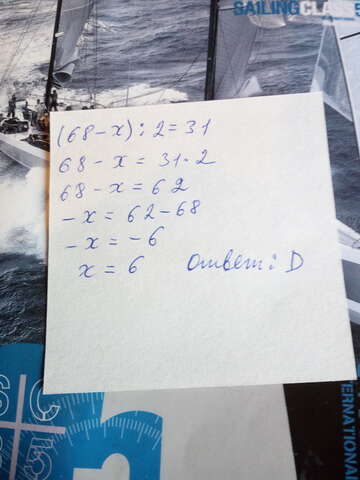 SAILING CLASS
(68-x):2=31
68-x=31·2
68-x=62
-x=62-68
-x=-6
x=6 Ответ: D
INTERNATIONAL